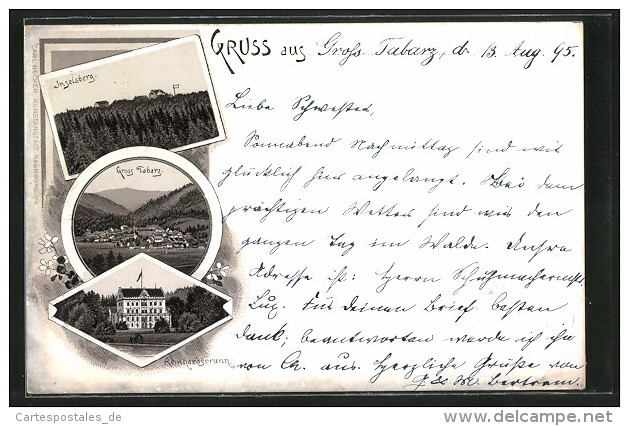 GRUSS aus Gross Tabarz, d. 13. Aug. 95.
Liebe Schwester,
Sonnabend Nachmittag sind wir
glücklich hier angelangt. Bei dem
prächtigen Wetter sind wir den
ganzen Tag im Walde. Unsre
Adresse ist: Herrn Schuhmachermst.
Lux. Für deinen Brief besten
Dank; beantworten werde ich ihn
von aus. Herzliche Grüße von
Bertram.
Inselsberg.
Gross Tabarz.
Reinhardsbrunn.
CARL BECKER, KUNSTANSTALT, NAUMBURG
Cartespostales_de
delcampe.net